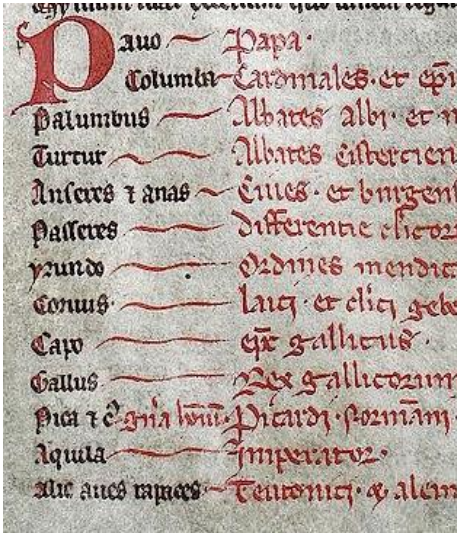 Pavo Papa.
Columba Cardinales. et epi
Palumbus Abbates albi. et n
Turtur Abbates Cistercien
Anseres ⁊ anas Ciues. et burgens
Passeres differentie clicor
yrundo Ordines mendic
Coruus laici. et clici gebe
Capo epc gallicus.
Gallus Rex gallicorum
Pica ⁊ Picardi. Normani.
Aquila Imperator.
Alie aues rapaces Teutonici. alem